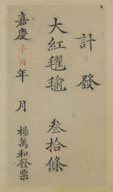 計發
大紅氆氇　叁拾條
嘉慶辛酉年　月　楊萬和發票